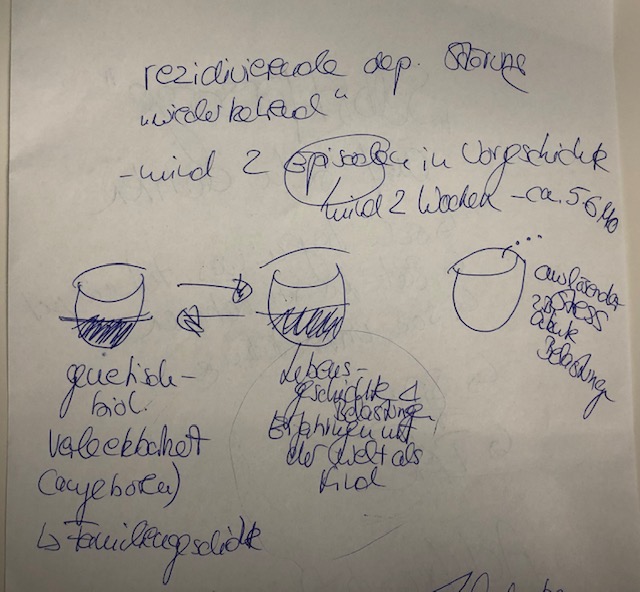 rezidivierende dep. Störung
„wiederkehrend“
- mind 2 Episoden in Vorgeschichte
mind 2 Wochen - ca. 5-6 Mo
genetisch-
biol.
Verletzbarkeit
(angeboren)
↳ Familiengeschichte
Lebens-
geschichte
Belastungen
Erfahrungen mit
der Welt als
Kind
auslösender
Stress
akute
Belastungen